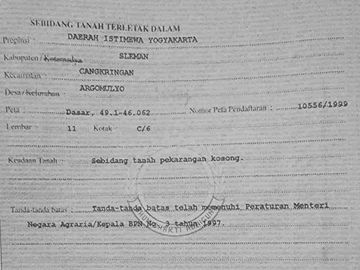 SEBIDANG TANAH TERLETAK DALAM
Propinsi : DAERAH ISTIMEWA YOGYAKARTA
Kabupaten / Kotamadya SLEMAN
Kecamatan : CANGKRINGAN
Desa / Kelurahan ARGOMULYO
Peta : Dasar, 49.1-46.062 Nomor Peta Pendaftaran : 10556/1999
Lembar 11 Kotak C/6
Keadaan Tanah : Sebidang tanah pekarangan kosong.
Tanda-tanda batas : Tanda-tanda batas telah memenuhi Peraturan Menteri
Negara Agraria/Kepala BPN No. 3 tahun 1997.